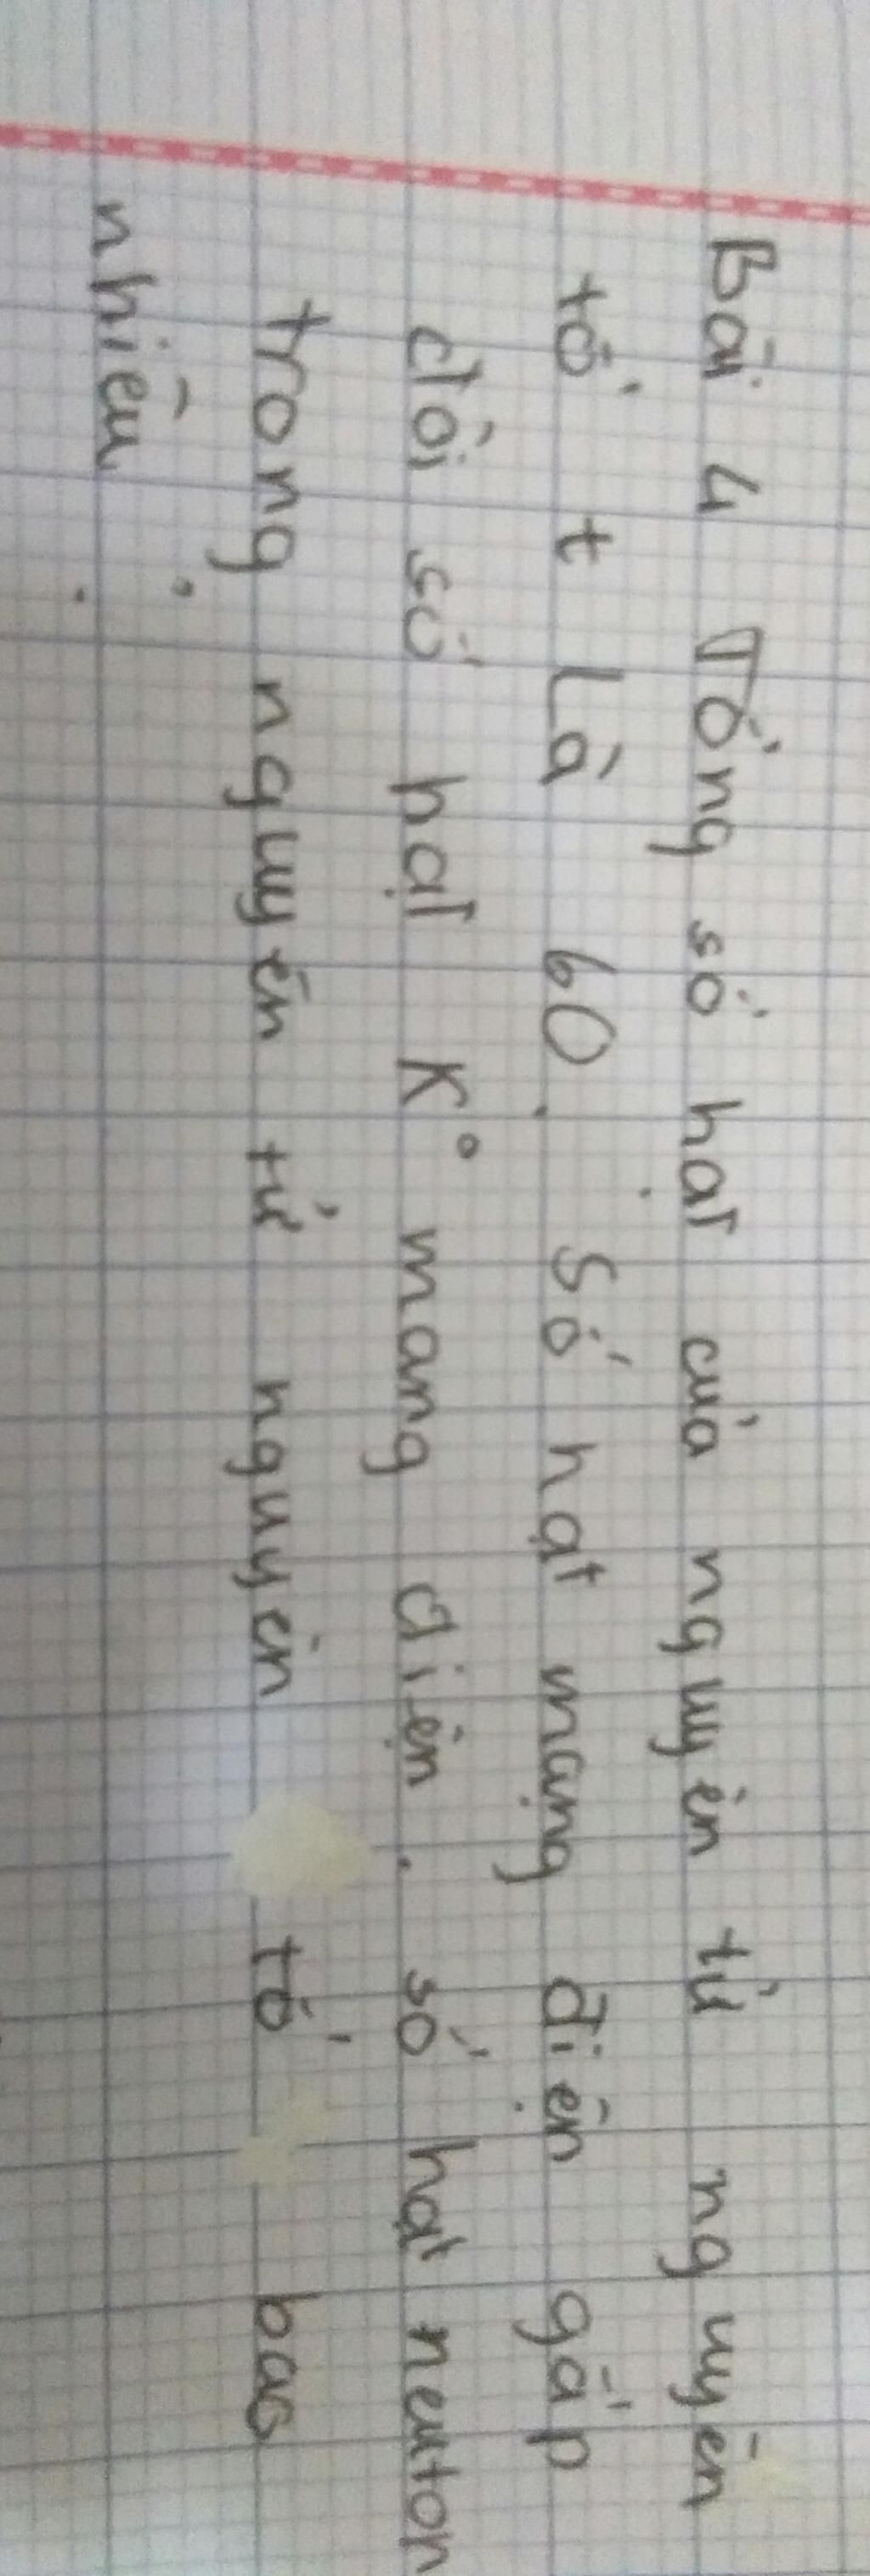 Bài 4 Tổng số hạt của nguyên tử nguyên
tố t là 60. Số hạt mạng điện gấp
đôi số hạt k° mang điện. số hạt neuton
trong nguyên tử nguyên tố bao
nhiêu.